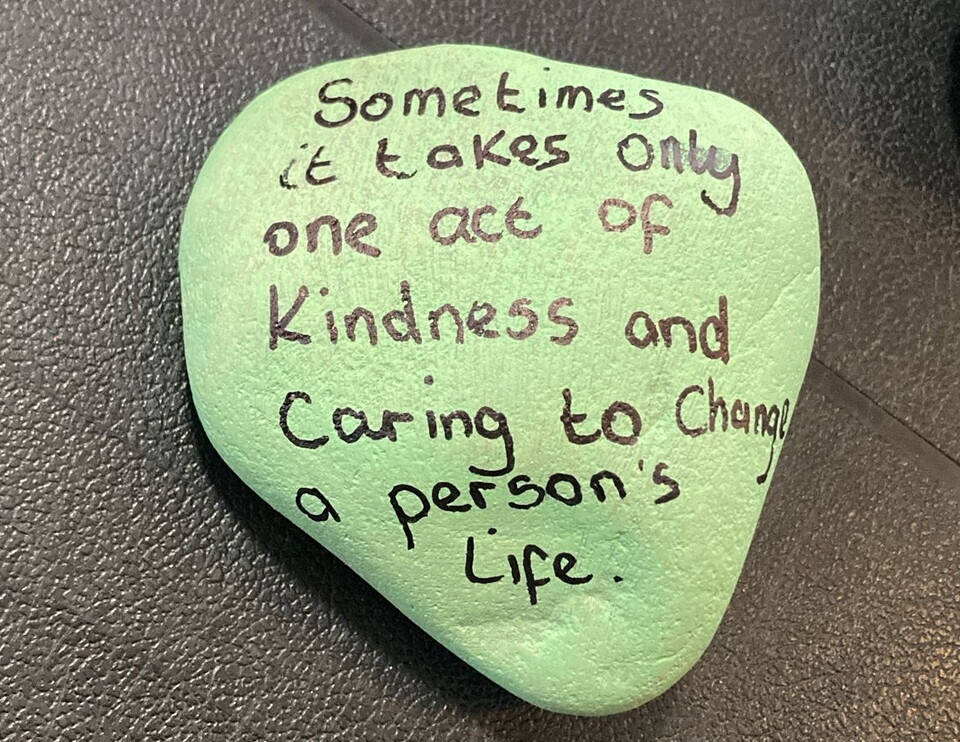 Sometimes
it takes only
one act of
Kindness and
Caring to Change
a person's
Life.